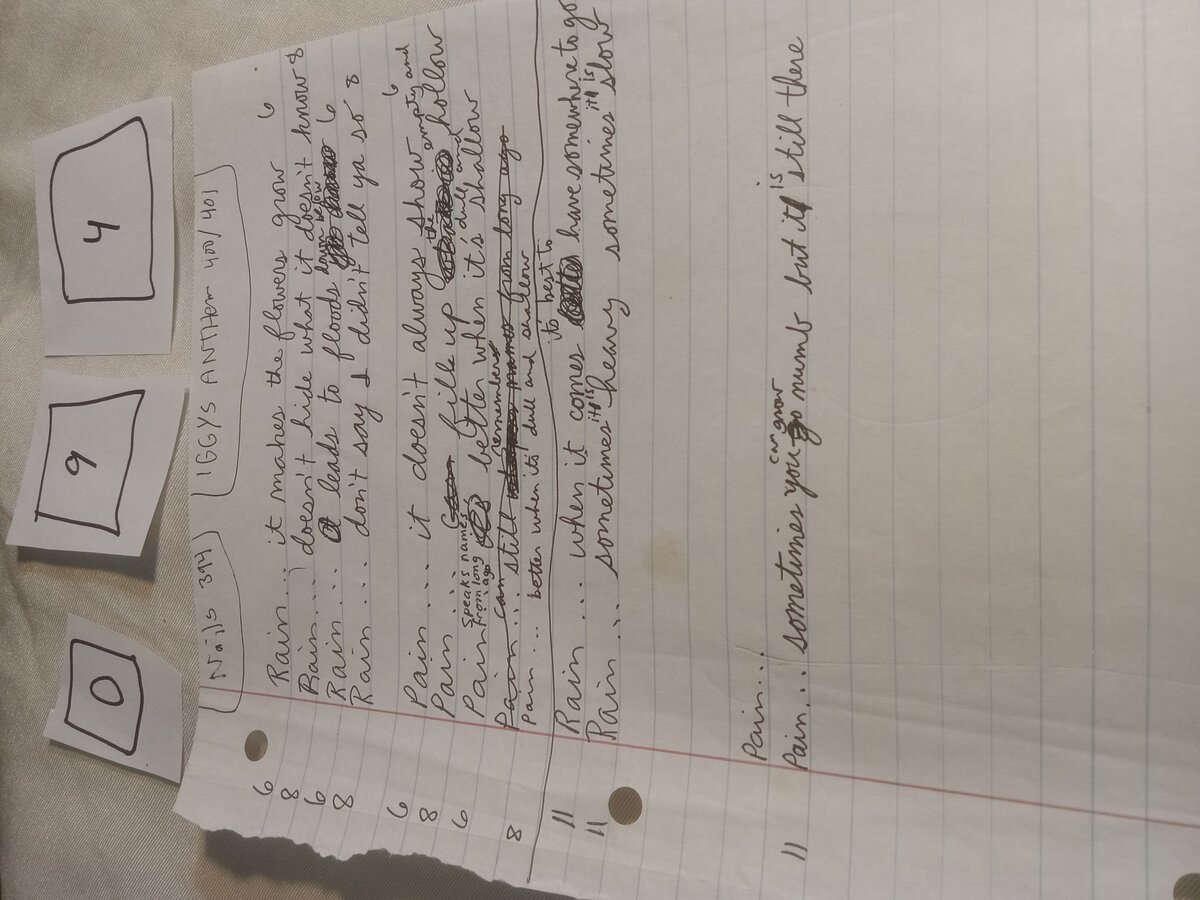 0 9 4
Nails 394 IGGYS ANTHEM 400/401
6 Rain... it makes the flowers grow 6
8 Rain... doesn't hide what it doesn't know 8
6 Rain... leads to floods down below 6
8 Rain... don't say I didn't tell ya so 8
6 Pain... it doesn't always show 6
8 Pain... fills up the empty and hollow
6 Pain speaks names from long ago
better when it's dull and shallow
Pain... can still remember names from long ago
8 Pain... better when its dull and shallow
11 Rain... when it comes to best to have somewhere to go
11 Rain... sometimes it is heavy sometimes it is slow
Pain...
11 Pain... sometimes you can grow numb but it is still there